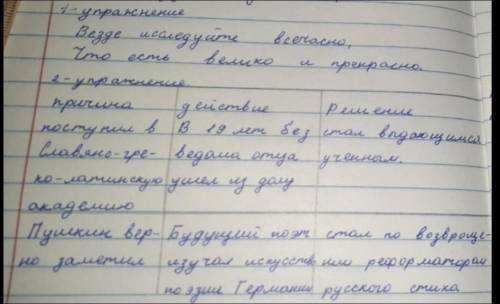 1-упражнение
Везде исследуйте всечасно,
Что есть велико и прекрасно.
2-упражнение.
причина действие Решение
поступил в В 19 лет без стал выдающимся
Славяно-гре- ведома отца ученным.
ко-латинскую ушел из дому
академию
Пушкин вер- Будущий поэт стал по возвраще-
но заметил изучал искусств нии реформатором
поэзие Германии русского стиха